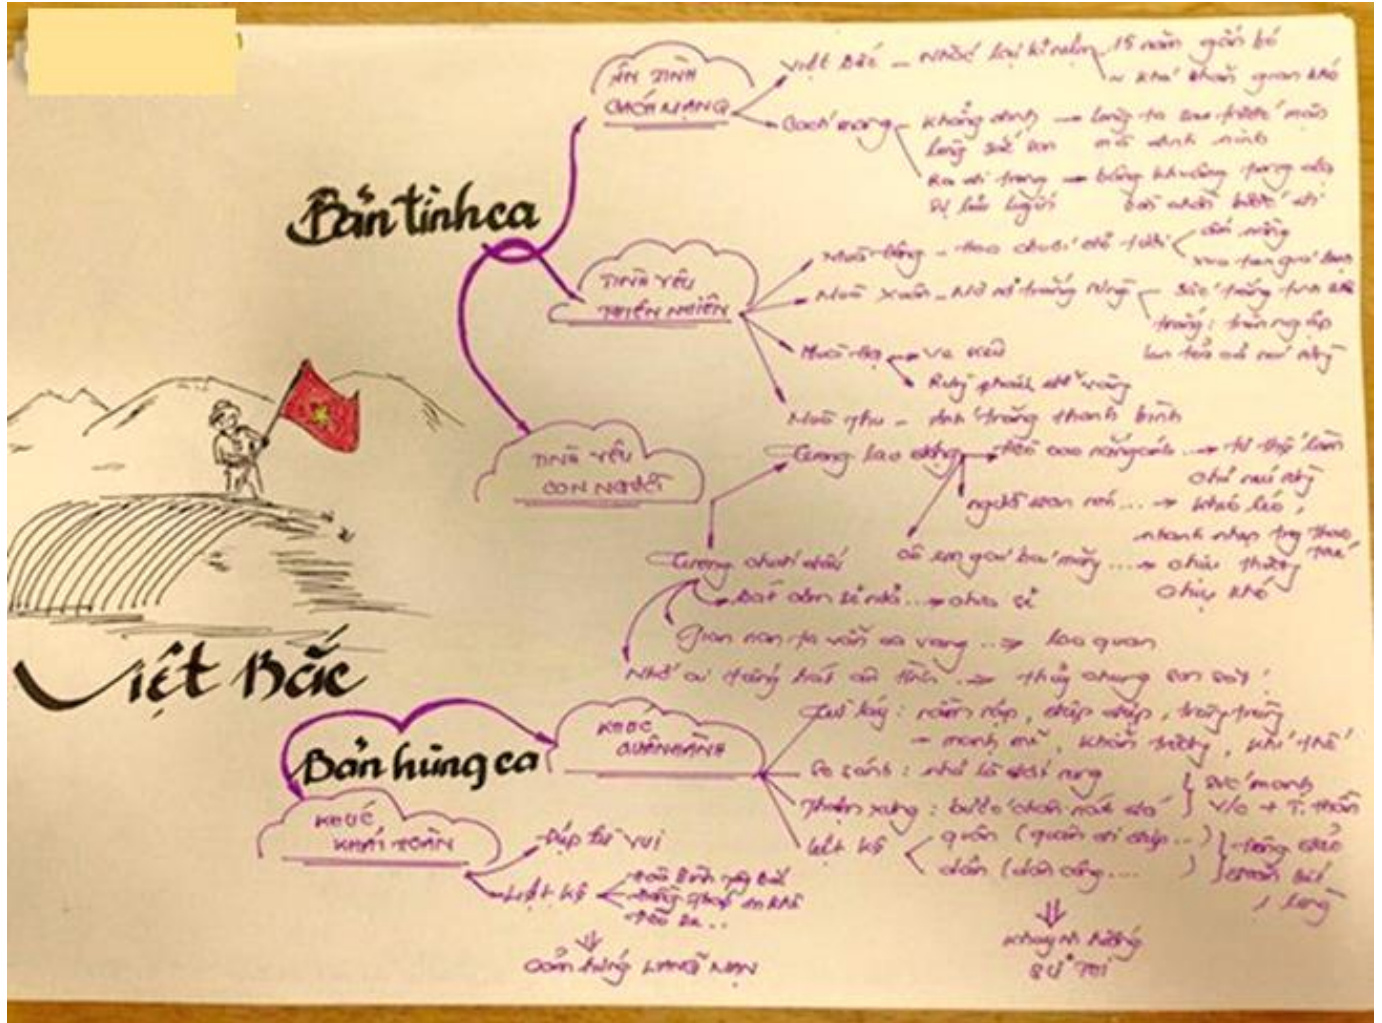 Việt Bắc
Bản tình ca
ÂN TÌNH
CÁCH MẠNG
Việt Bắc – Nhắc lại kỉ niệm
15 năm gắn bó
khó khăn gian khổ
Cách mạng – khẳng định → lòng ta sau trước mặn
lòng sắt son mà đinh ninh
Ra đi trong → bâng khuâng trong dạ
sự lưu luyến bồn chồn bước đi
TÌNH YÊU
THIÊN NHIÊN
Mùa đông – Hoa chuối đỏ tươi
ấm nóng
xua tan giá lạnh
Mùa xuân – Mơ nở trắng rừng
Sắc trắng tinh khiết
trắng: tràn ngập
lan tỏa cả núi rừng
Mùa hạ
Ve kêu
Rừng phách đổ vàng
Mùa thu – Ánh trăng thanh bình
TÌNH YÊU
CON NGƯỜI
Trong lao động
đèo cao nắng ánh → tư thế làm
chủ núi rừng
người đan nón ... → khéo léo,
nhanh nhẹn trg thao
tác
cô em gái hái măng ... → chịu thương
chịu khó
Trong chiến đấu
Bát cơm sẻ nửa ... → chia sẻ
Gian nan ta vẫn ca vang ... → lạc quan
Nhớ ai tiếng hát ân tình ... → thủy chung son sắt!
Bản hùng ca
KHÚC
QUÂN HÀNH
Từ láy: rầm rập, điệp điệp, trùng trùng
→ mạnh mẽ, khẩn trương, khí thế
So sánh: như là đất rung
Thậm xưng: bước chân nát đá
sức mạnh
v/c + T. thần
Liệt kê
quân (quân đi điệp ...)
dân (dân công ... )
đông đảo
đoàn kết
1 lòng
⇓
khuynh hướng
SỬ THI
KHÚC
KHẢI HOÀN
Điệp từ vui
Liệt kê
Hòa Bình, Tây Bắc
Đồng Tháp, An Khê
đèo De ..
⇓
cảm hứng LÃNG MẠN